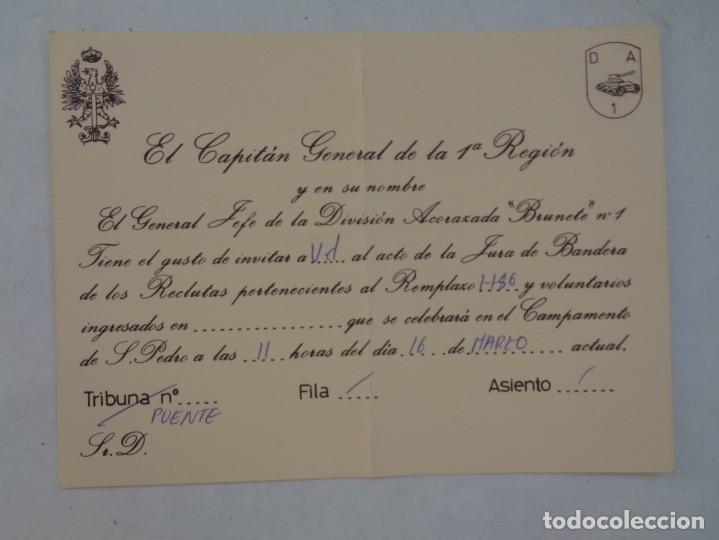 D A
1
El Capitán General de la 1ª Región
y en su nombre
El General Jefe de la División Acorazada "Brunete" nº 1
Tiene el gusto de invitar a Vd al acto de la Jura de Bandera
de los Reclutas pertenecientes al Remplazo 1-186 y voluntarios
ingresados en .................. que se celebrará en el Campamento
de S. Pedro a las 11 horas del día 16 de MARZO actual.
Tribuna nº ..... Fila ..... Asiento .......
PUENTE
Sr. D.
todocoleccion
todocoleccion.net